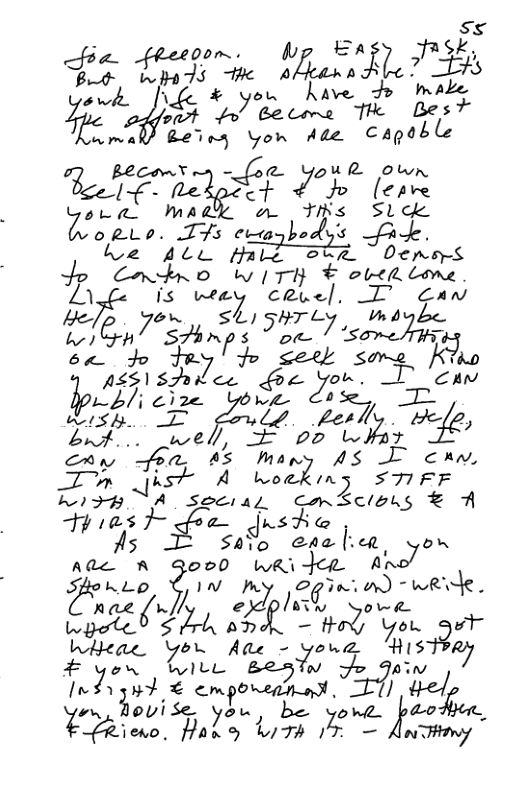 55
for freedom. No EASY TASK.
But whats the alternative? It's
your life & you have to make
the effort to become the Best
human Being you are capable
of Becoming - for your own
self-respect & to leave
your mark on this sick
world. Its everybody's fate.
We all have our Demons
to contend with & overcome.
Life is very cruel. I can
Help you slightly, maybe
with stamps or something
or to try to seek some kind
of assistance for you. I can
publicize your case, I
wish I could really help,
but... well, I do what I
can for as many as I can.
I'm just a working stiff
with a social conscious & a
thirst for justice.
As I said earlier, you
are a good writer and
should (in my opinion) - write.
Carefully explain your
whole situation - How you got
where you are - your history
& you will begin to gain
insight & empowerment. I'll Help
you, advise you, be your brother
& friend. Hang with it. - Anthony